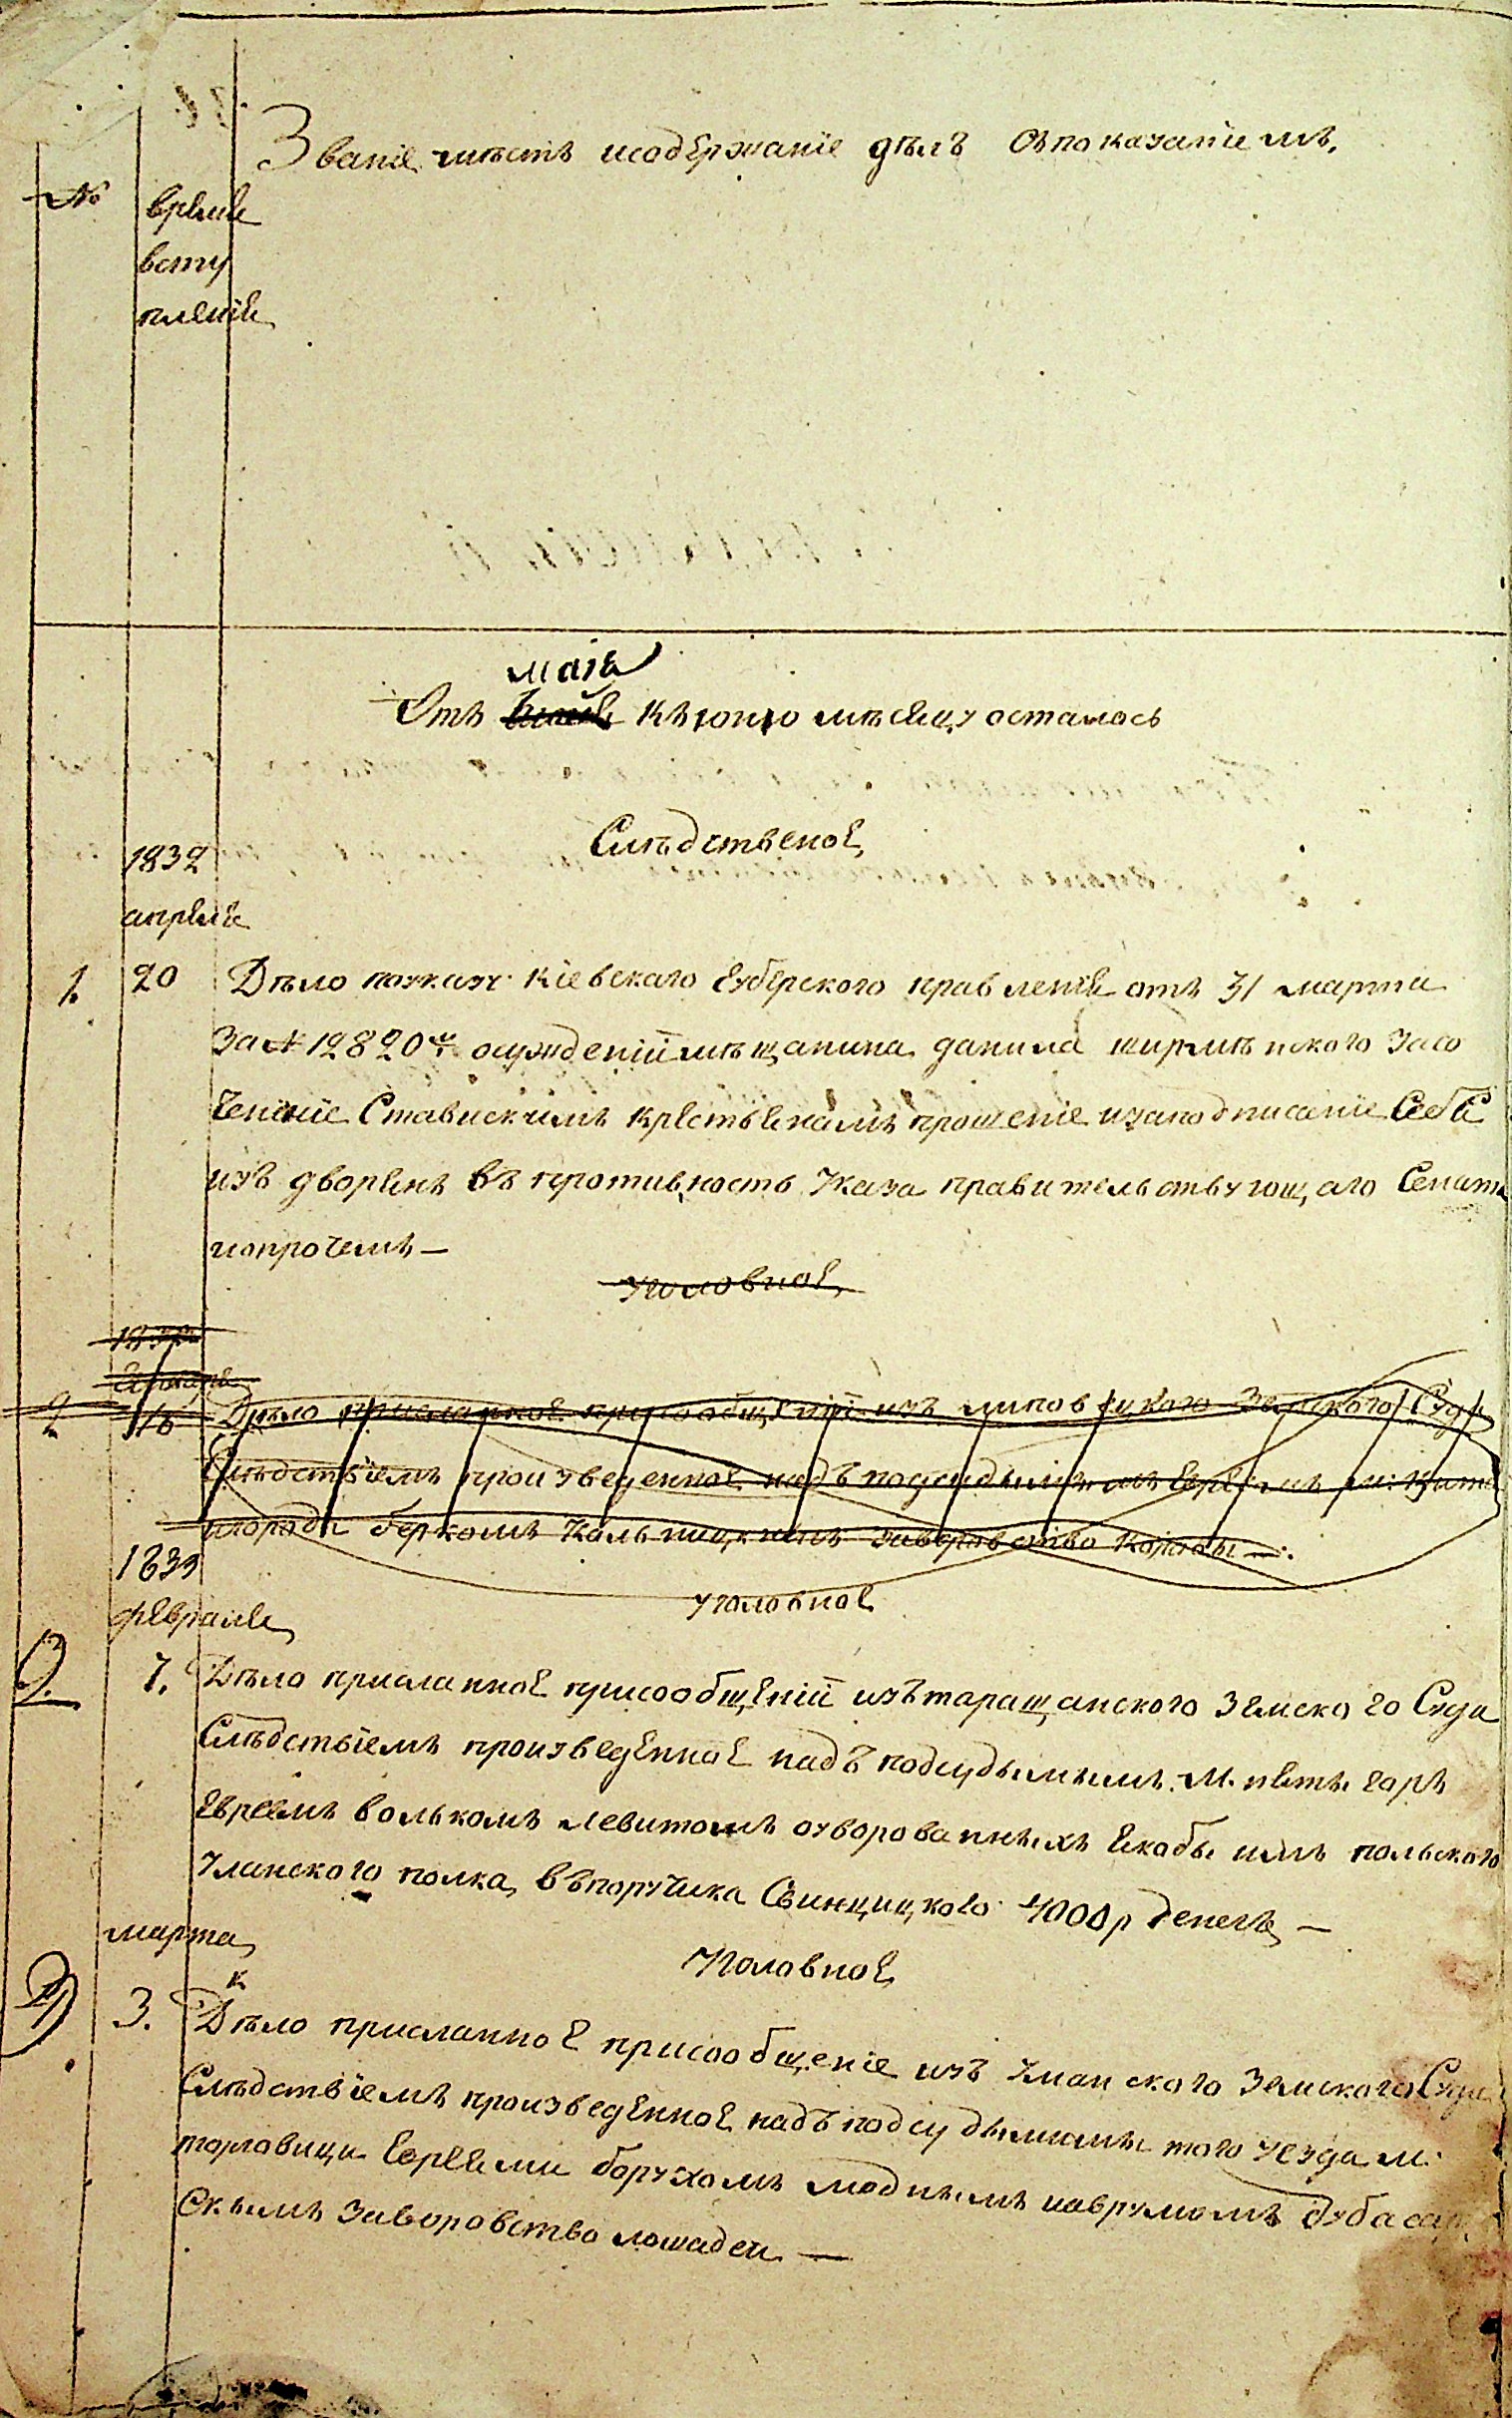 Званіе мѣстъ исодержаніе дѣлъ Съпоказаніемъ.
№
время
всту
пленія
маія
Отъ къ іюню мѣсяцу осталось
Слѣдственое
1832
апреля
1. 20 Дѣло поуказу Кіевскаго Губерского правленія отъ 31 марта
За № 12820м осужденіи мѣщанина данила ширмѣнского Засо
чененіе Ставискимъ крестьянамъ прошеніе изаподписаніе Себя
изъ дворянъ въ противность Указа правительствующаго Сената
ипрочемъ —
Уголовное
2 16 Дѣло присланное присообщеніи изъ липовецкого Земского Суда
Слѣдствіемъ произведенное надъ подсудимымъ евреемъ м:
городи Беркомъ Кальницкимъ Заворовство Коровы —.
1833
февраля
Уголовное
2. 7. Дѣло присланное присообщеніи изътаращанского Земского Суда
Слѣдствіемъ произведенное надъ подсудымымъ м. пятигоръ
Евреемъ волькомъ левитомъ оуворованныхъ Якобы имъ польского
Уланского полка въ поручика Свинцицкого 4000 р денегъ —
марта
Уголовное
к
3. Дѣло присланное присообщеніе изъ Уманского Земского Суда
Слѣдствіемъ произведенное надъ подсудымыми того уезда м.
торговици Евреями борухомъ моднымъ иаврумомъ дубасар
Скымъ Заворовство лошадеи —